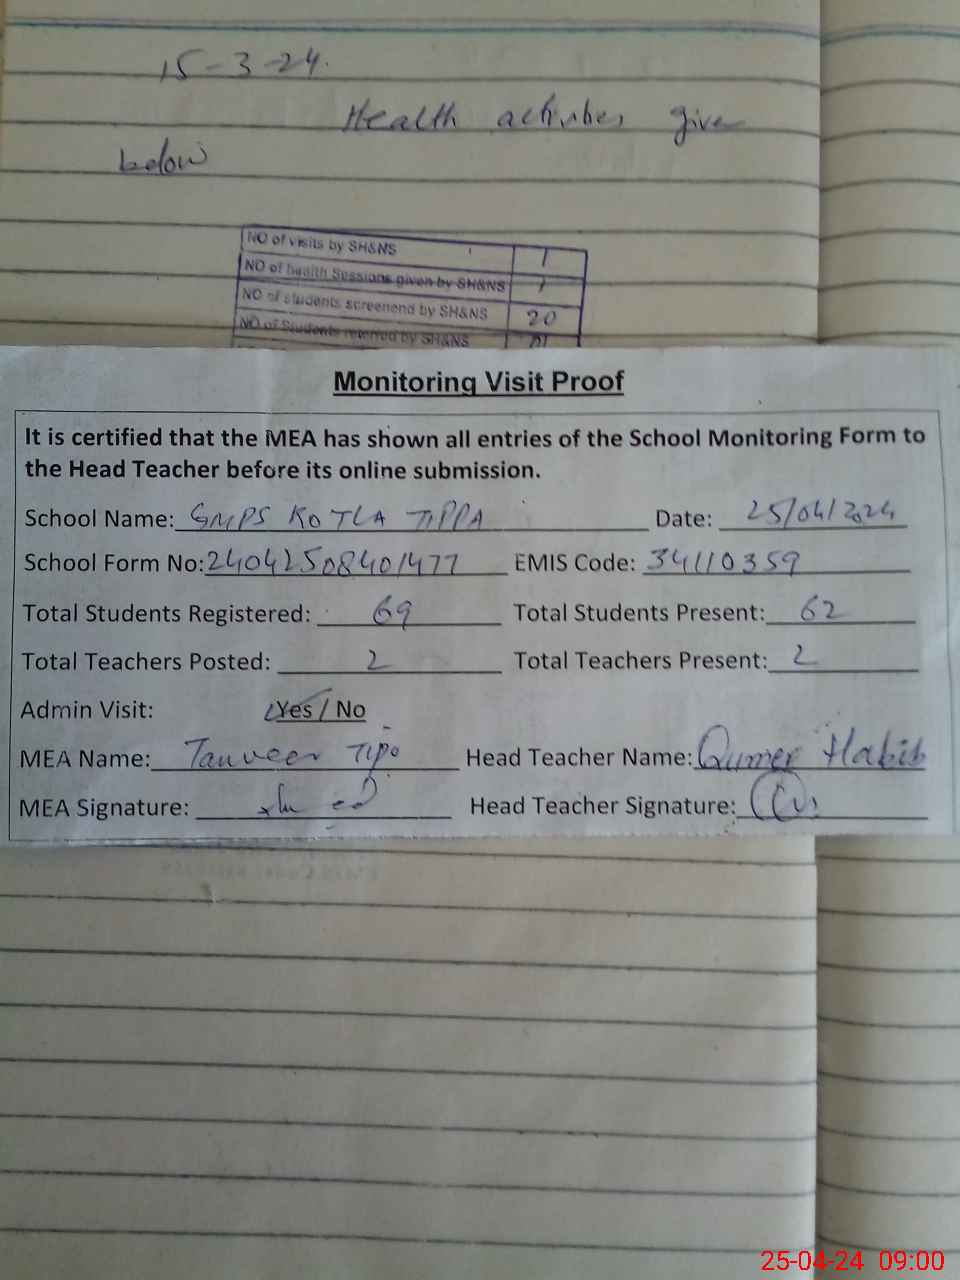 15-3-24.
Health activities given
below
NO of visits by SH&NS 1
NO of health Sessions given by SH&NS 1
NO of students screenend by SH&NS 20
NO of Students referred by SH&NS
Monitoring Visit Proof
It is certified that the MEA has shown all entries of the School Monitoring Form to
the Head Teacher before its online submission.
School Name: GMPS KOTLA TIPPA Date: 25/04/2024
School Form No: 24042508401477 EMIS Code: 34110359
Total Students Registered: 69 Total Students Present: 62
Total Teachers Posted: 2 Total Teachers Present: 2
Admin Visit: Yes / No
MEA Name: Tanveer Tipo Head Teacher Name: Qumer Habib
MEA Signature: Head Teacher Signature:
25-04-24 09:00